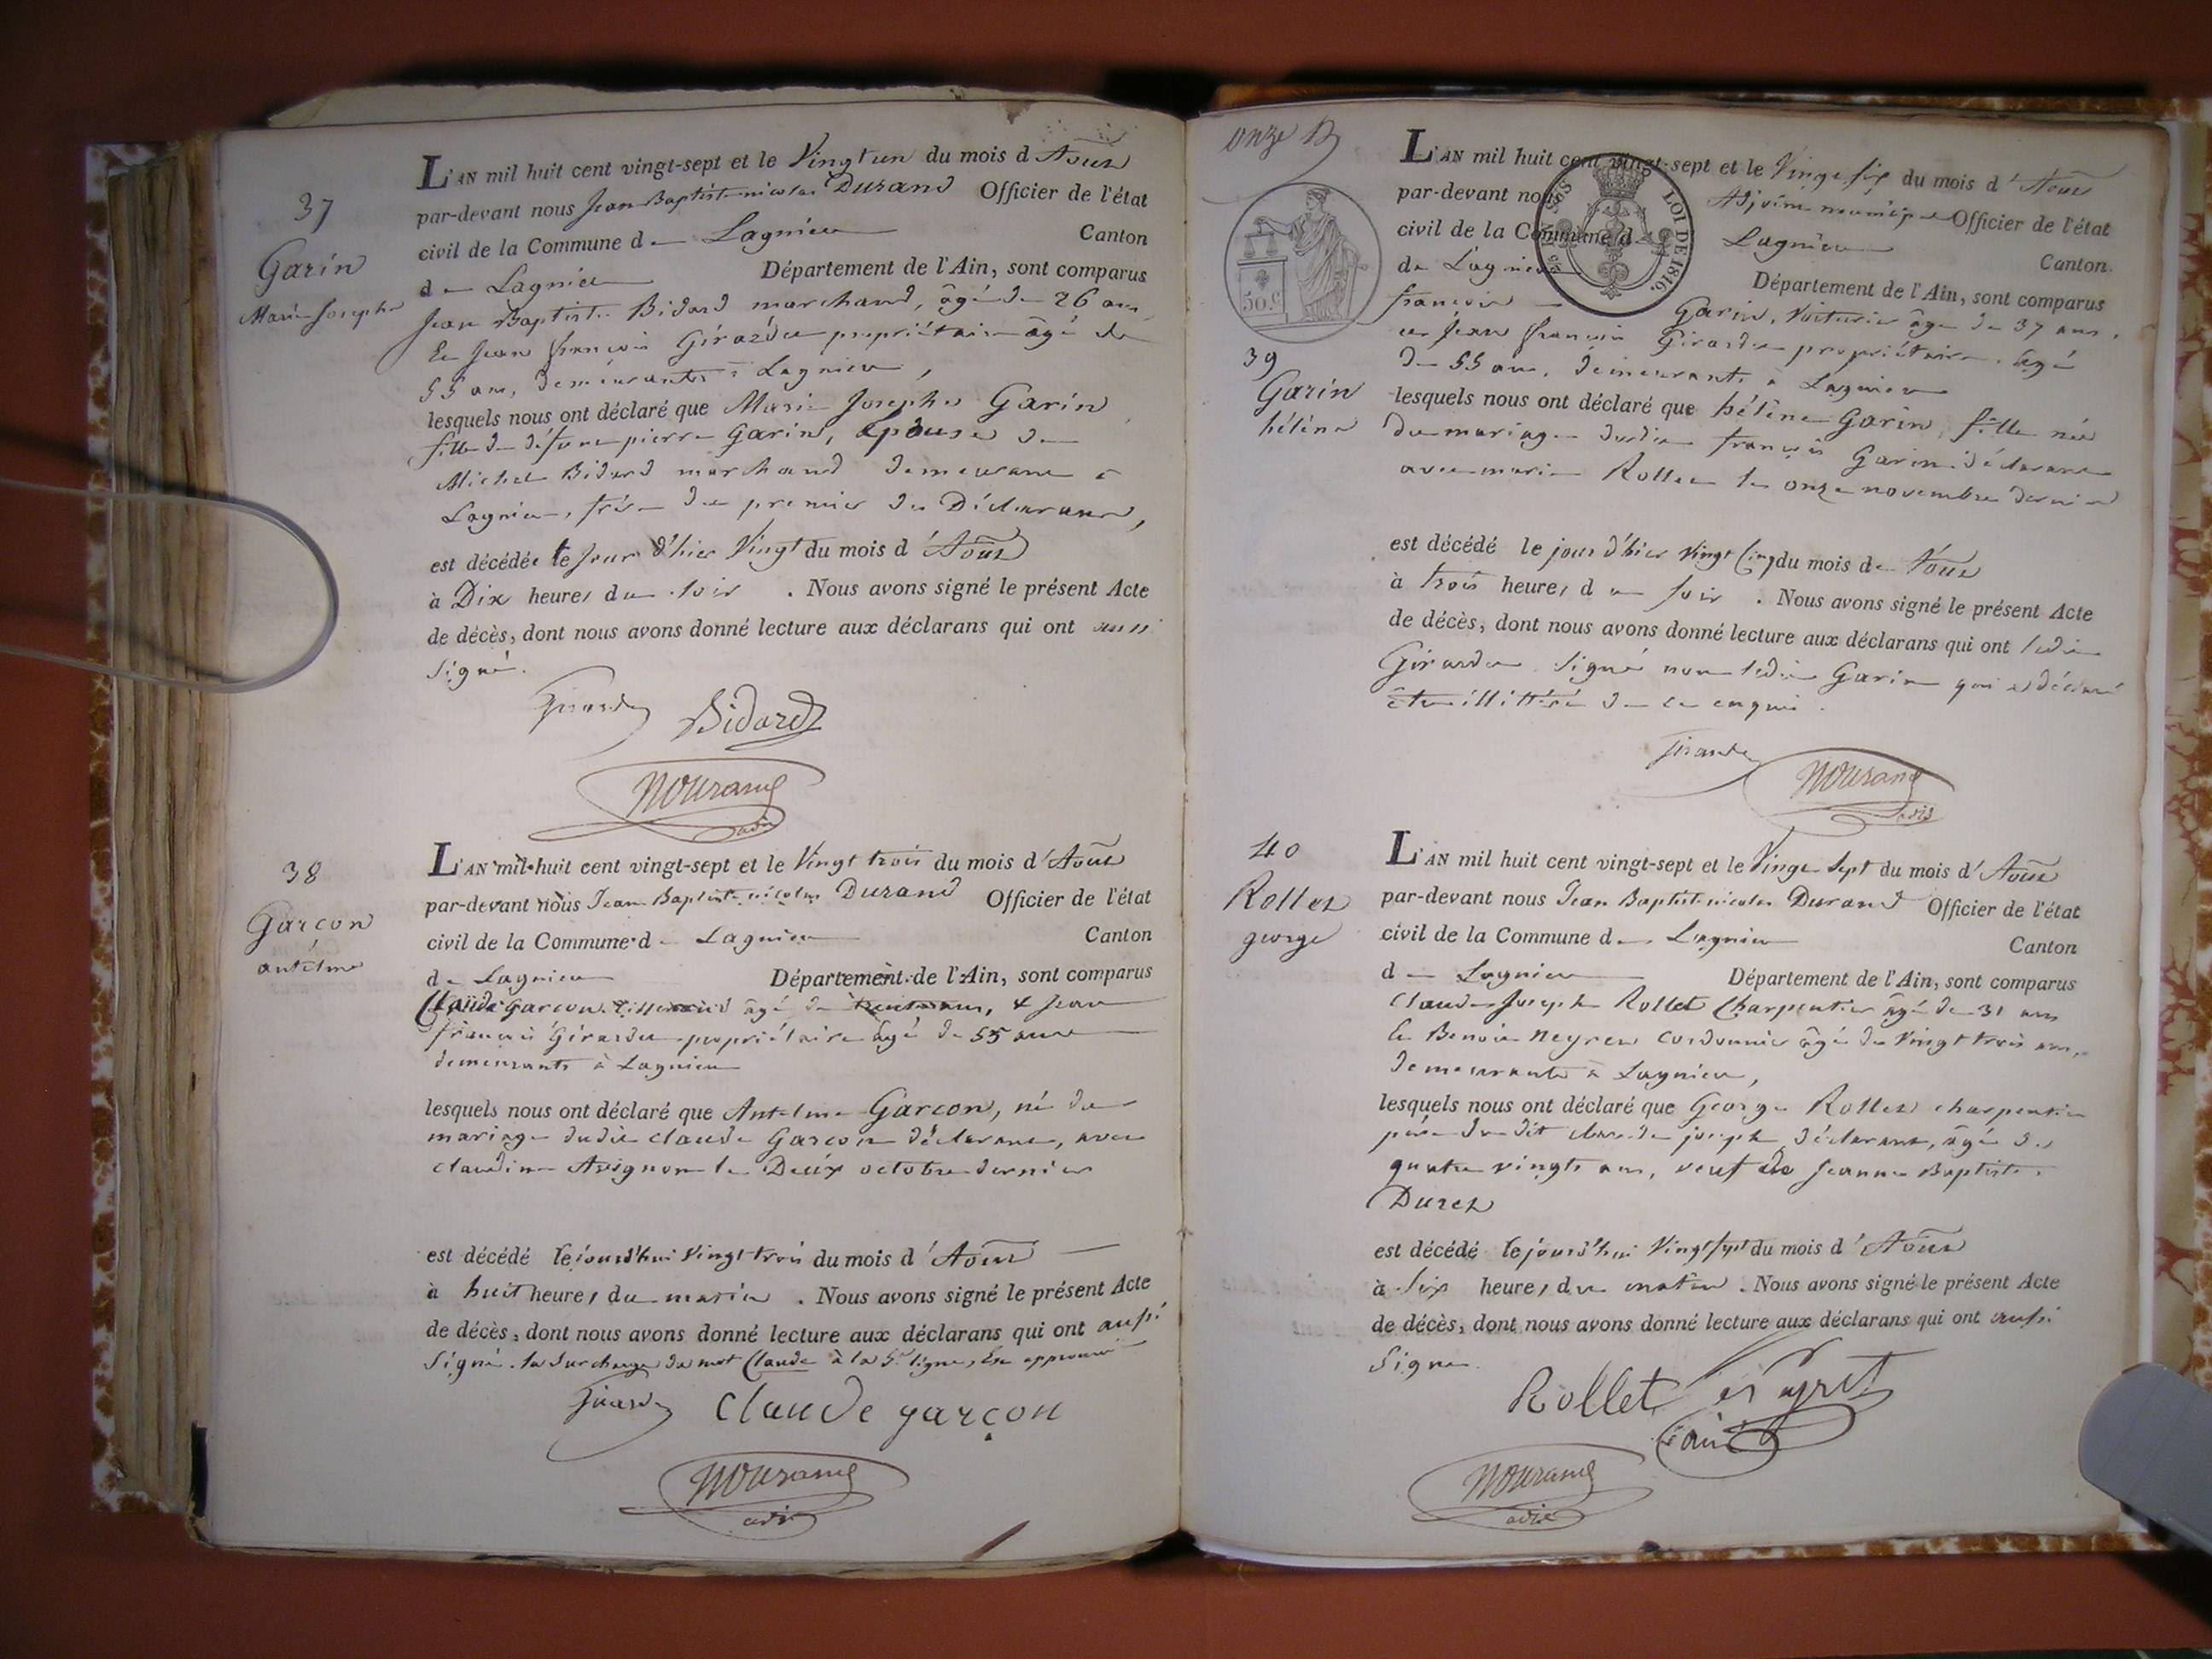 37
Garin
Marie Josephe
L'AN mil huit cent vingt-sept et le Vingt un du mois d'Aout
par-devant nous Jean Baptiste nicolas Durand Officier de l'état
civil de la Commune de Lagnieu Canton
de Lagnieu Département de l'Ain, sont comparus
Jean Baptiste Bidard marchand, âgé de 26 ans
Et Jean françois Girardet propriétaire âgé de
55 ans, demeurants à Lagnieu,
lesquels nous ont déclaré que Marie Josephe Garin
fille de défunt pierre Garin, épouse de
Michel Bidard marchand demeurant à
Lagnieu, frère du premier des Déclarans,
est décédée le jour d'hier Vingt du mois d'Aout
à Dix heures du soir. Nous avons signé le présent Acte
de décès, dont nous avons donné lecture aux déclarans qui ont aussi
signé.
Girardet Bidard
NDurand
adj.
38
Garcon
antelme
L'AN mil huit cent vingt-sept et le Vingt trois du mois d'Aout
par-devant nous Jean Baptiste nicolas Durand Officier de l'état
civil de la Commune de Lagnieu Canton
de Lagnieu Département de l'Ain, sont comparus
Claude Garcon âgé de ans, & Jean
françois Girardet propriétaire âgé de 55 ans
demeurants à Lagnieu
lesquels nous ont déclaré que Antelme Garcon, né du
mariage dudit claude Garcon déclarant, avec
claudine Avignon le Deux octobre dernier
est décédé le jourd'hui Vingt trois du mois d'Aout
à huit heures du matin. Nous avons signé le présent Acte
de décès, dont nous avons donné lecture aux déclarans qui ont aussi
Signé. la surcharge du mot Claude à la 5e ligne, Est approuvée
Girardet claude garçon
NDurand
adj.
onze
LOI DE 1816.
50.c
39
Garin
hélène
L'AN mil huit cent vingt-sept et le Vingt six du mois d'Aout
par-devant nous Adjoint municipal Officier de l'état
civil de la Commune de Lagnieu Canton
de Lagnieu Département de l'Ain, sont comparus
françois Garin, Voiturier âgé de 37 ans,
et Jean françois Girardet propriétaire, âgé
de 55 ans, demeurants à Lagnieu
lesquels nous ont déclaré que hélène Garin, fille née
du mariage dudit françois Garin déclarant
avec marie Rollet le onze novembre dernier
est décédé le jour d'hier Vingt Cinq du mois de Aout
à trois heures du soir. Nous avons signé le présent Acte
de décès, dont nous avons donné lecture aux déclarans qui ont ledit
Girardet signé non ledit Garin qui a déclaré
être illittéré de ce enquis.
Girardet
NDurand
adj.
40
Rollet
george
L'AN mil huit cent vingt-sept et le Vingt Sept du mois d'Aout
par-devant nous Jean Baptiste nicolas Durand Officier de l'état
civil de la Commune de Lagnieu Canton
de Lagnieu Département de l'Ain, sont comparus
Claude Joseph Rollet Charpentier âgé de 31 ans
Et Benoit Neyret Cordonnier âgé de Vingt trois ans,
demeurants à Lagnieu,
lesquels nous ont déclaré que George Rollet charpentier
père du dit claude joseph déclarant, âgé de
quatre vingts ans, veuf de Jeanne Baptiste
Duret
est décédé le jourd'hui Vingt sept du mois d'Aout
à Six heures du matin. Nous avons signé le présent Acte
de décès, dont nous avons donné lecture aux déclarans qui ont aussi
Signé.
Rollet
NDurand
adj.